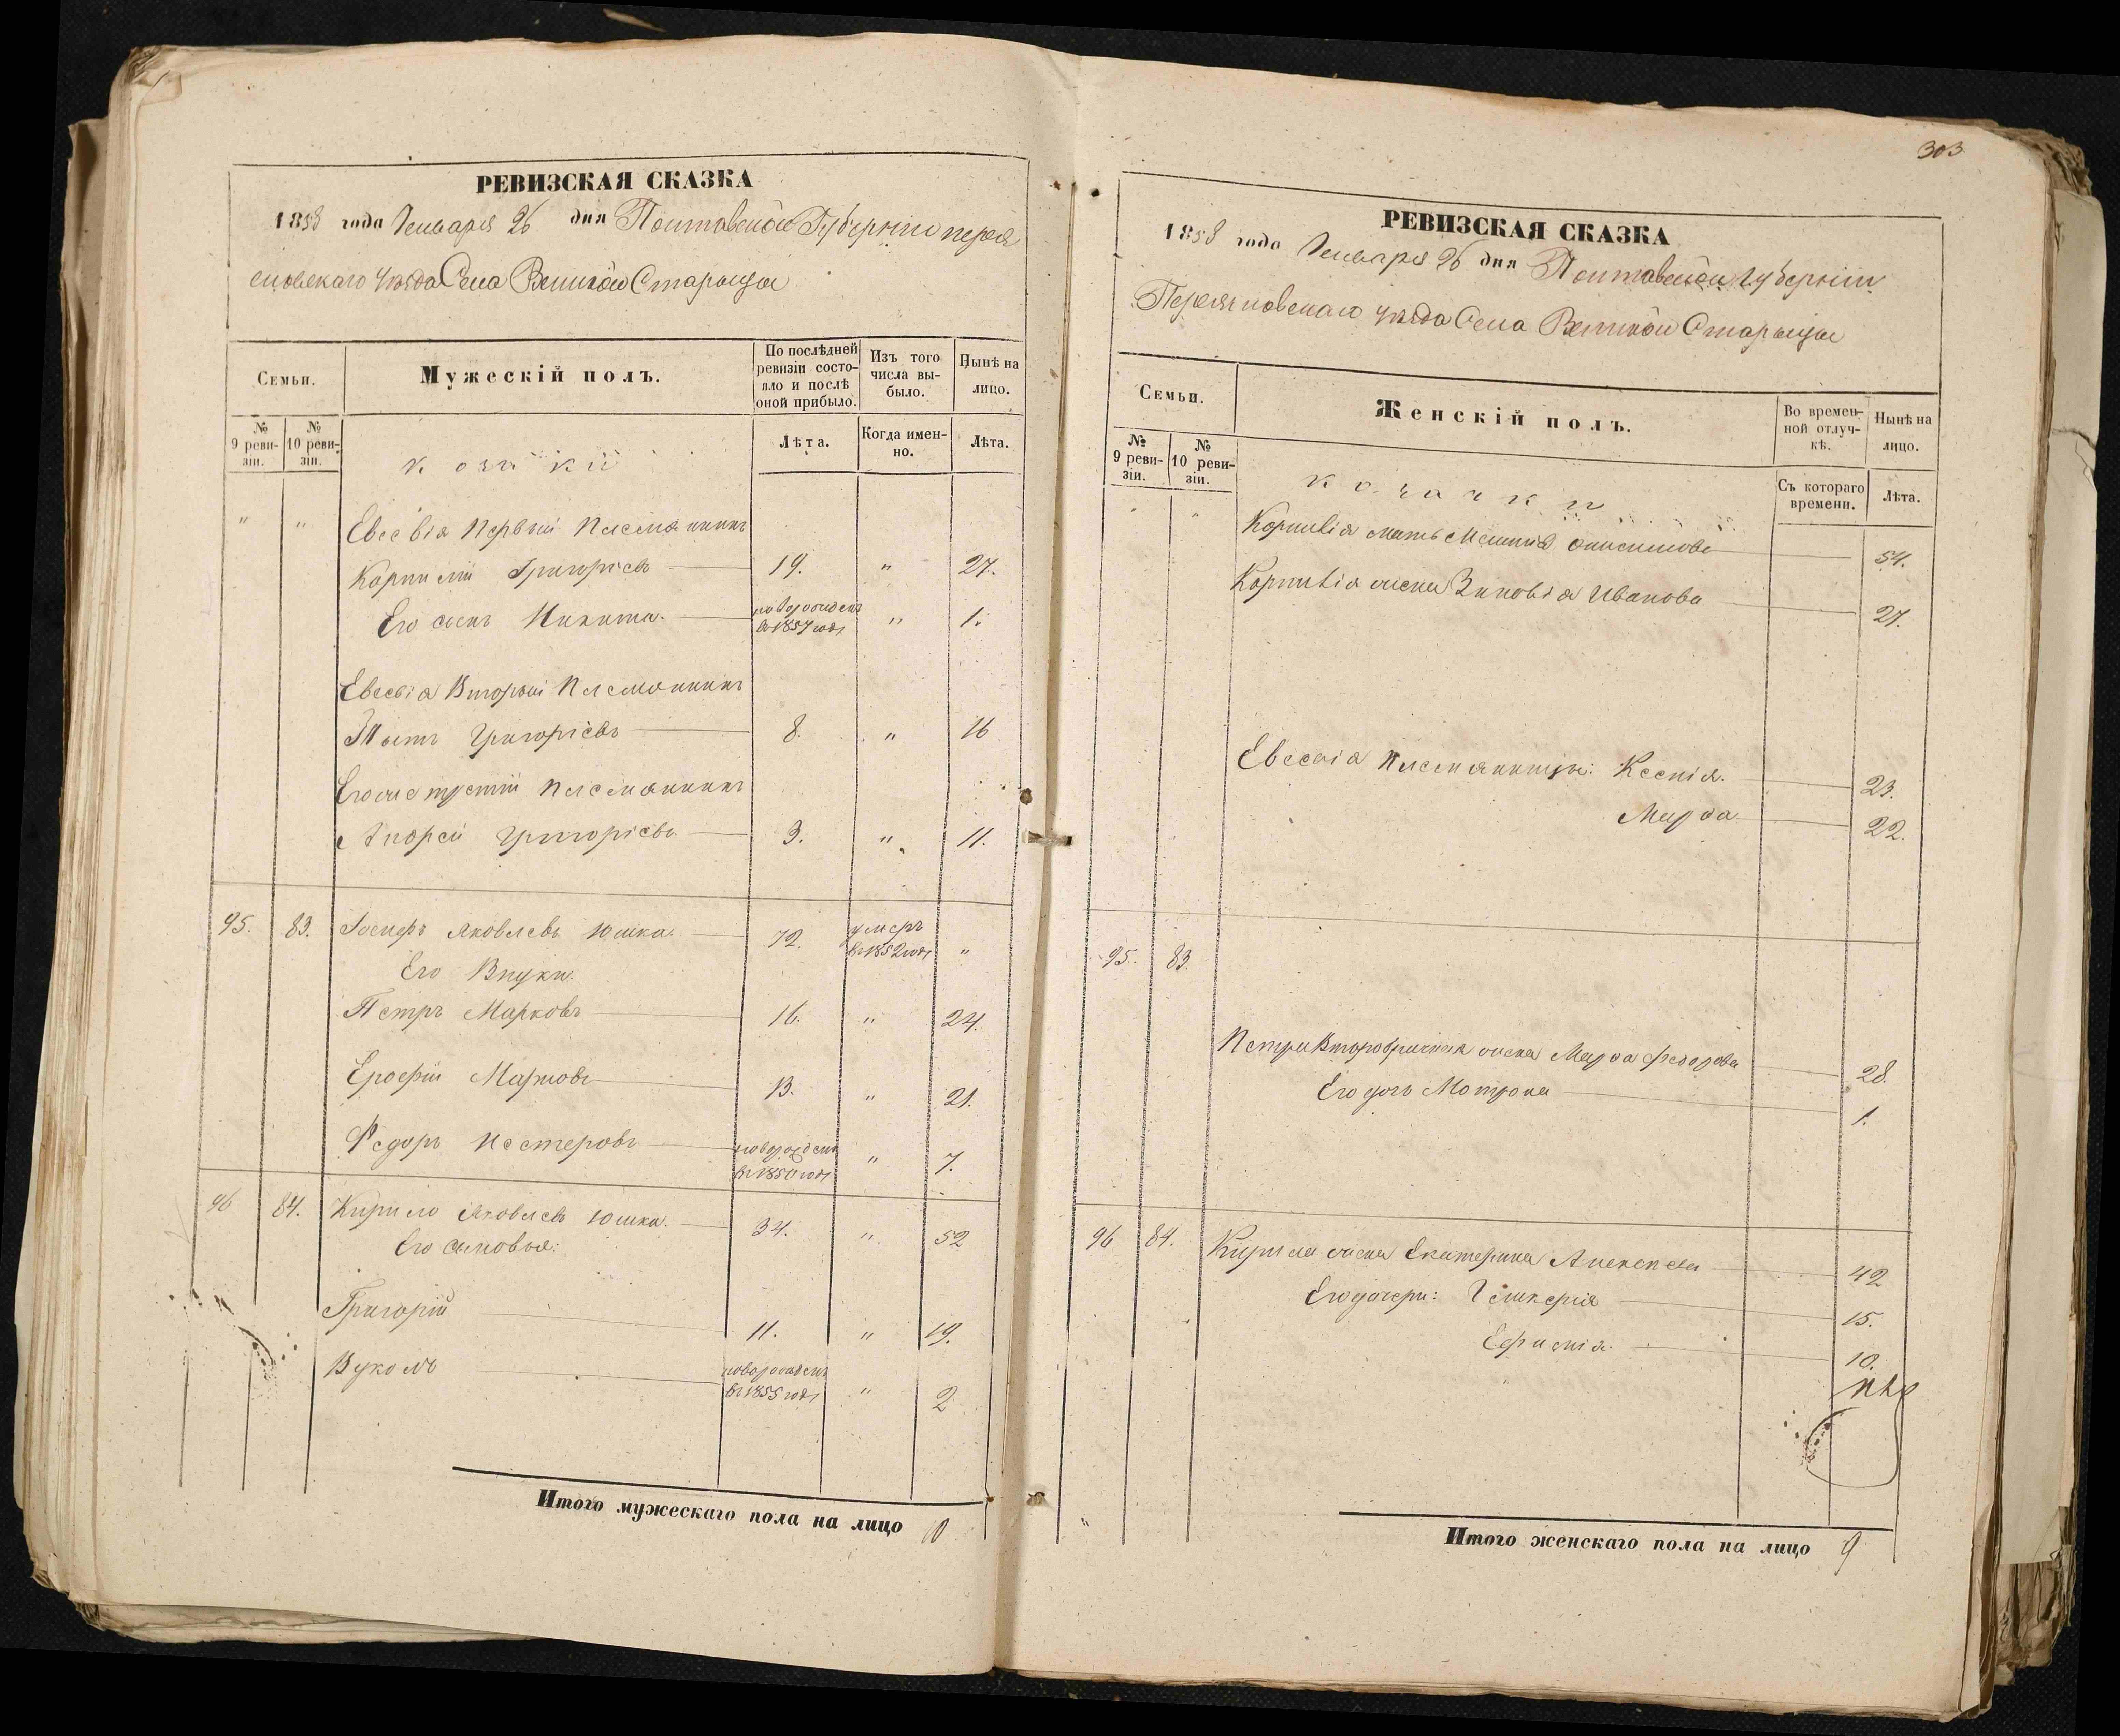 РЕВИЗСКАЯ СКАЗКА
1858 года Генваря 26 дня Полтавской Губерніи перея
славскаго уѣзда Села Великой Старыцы
Семьи.
Мужескій полъ.
По послѣдней ревизіи состояло и послѣ оной прибыло.
Изъ того числа выбыло.
Нынѣ на лицо.
№ 9 ревизіи.
№ 10 ревизіи.
козаки
Лѣта.
Когда именно.
Лѣта.
" " Евсевія Первый Племянникъ
Корнилій Григоріевъ 19. " 27.
Его сынъ Никита. новорожденъ в 1857 годѣ " 1.
Евсевія Вторый Племянникъ
Григоріевъ 8. " 16
Его же третій Племянникъ
Андрей Григоріевъ 3. " 11.
95. 83. Яковлевъ Юшка. 72. умеръ в 1852 годѣ "
Его Внуки:
Петръ Марковъ 16. " 24.
Ерофій Марковъ 13. " 21.
Федоръ Нестеровъ новорожденъ в 1850 годѣ " 7.
96 84. Кирило Яковлевъ Юшка. 34. " 52
Его сыновья:
Григорій 11. " 19.
Вуколъ новорожденъ в 1855 годѣ " 2
Итого мужескаго пола на лицо 10
303
РЕВИЗСКАЯ СКАЗКА
1858 года Генваря 26 дня Полтавской Губерніи
Переяславскаго уѣзда Села Великой Старыцы
Семьи.
Женскій полъ.
Во временной отлучкѣ.
Нынѣ на лицо.
№ 9 ревизіи.
№ 10 ревизіи.
козачки
Съ котораго времени.
Лѣта.
" " Корнилія мать Онисимова 54.
Корнилія жена Зиновія Иванова 27.
Евсевія племянницы: Ксенія. 23.
Марфа 22.
95. 83.
Петра Второбрачная жена Марфа Федорова 28.
Его дочь Мотрона 1.
96 84. Кирила жена Екатерина Алексѣева 42
Его дочери: Гликерія 15.
10.
Итого женскаго пола на лицо 9